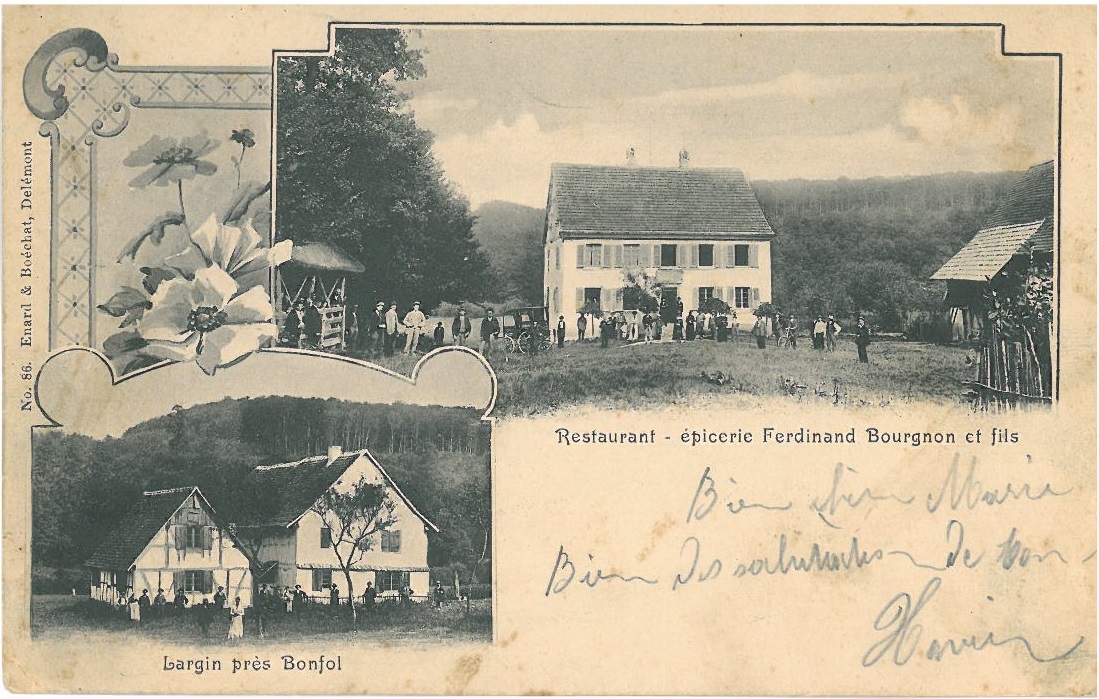 No. 86. Enard & Boéchat, Delémont
Restaurant - épicerie Ferdinand Bourgnon et fils
Bien chère Marie
Bien des salutation de ton
Largin près Bonfol